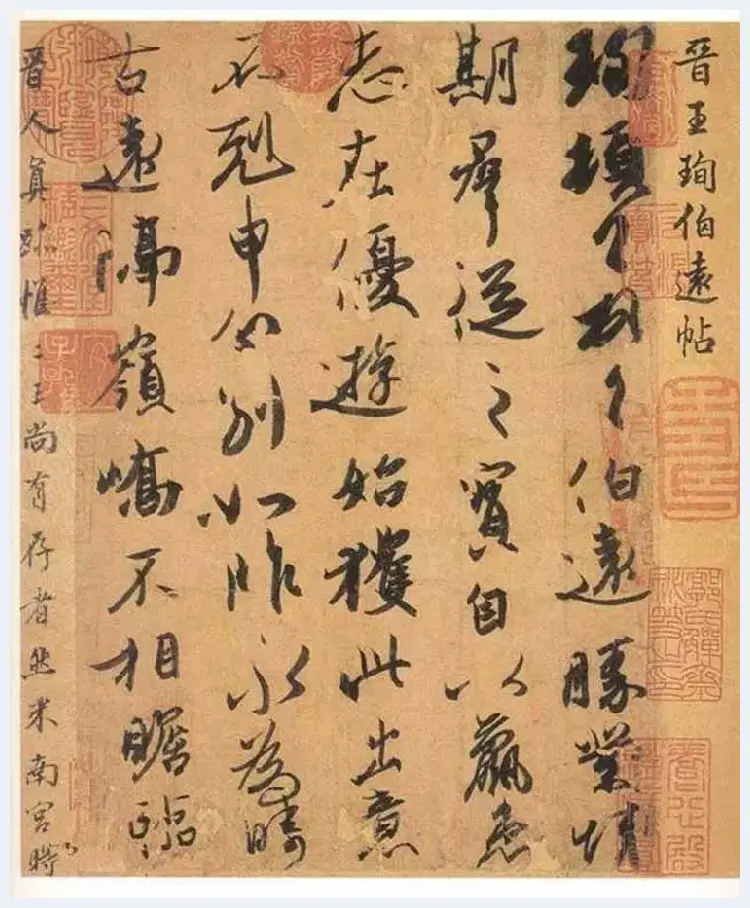 晉王珣伯遠帖
珣頓首頓首伯遠勝業情
期羣從之寶自以羸患
志在優遊始獲此出意
不剋申分別如昨永為疇
古遠隔嶺嶠不相瞻臨
晉人眞跡惟二王尚有存者然米南宮時